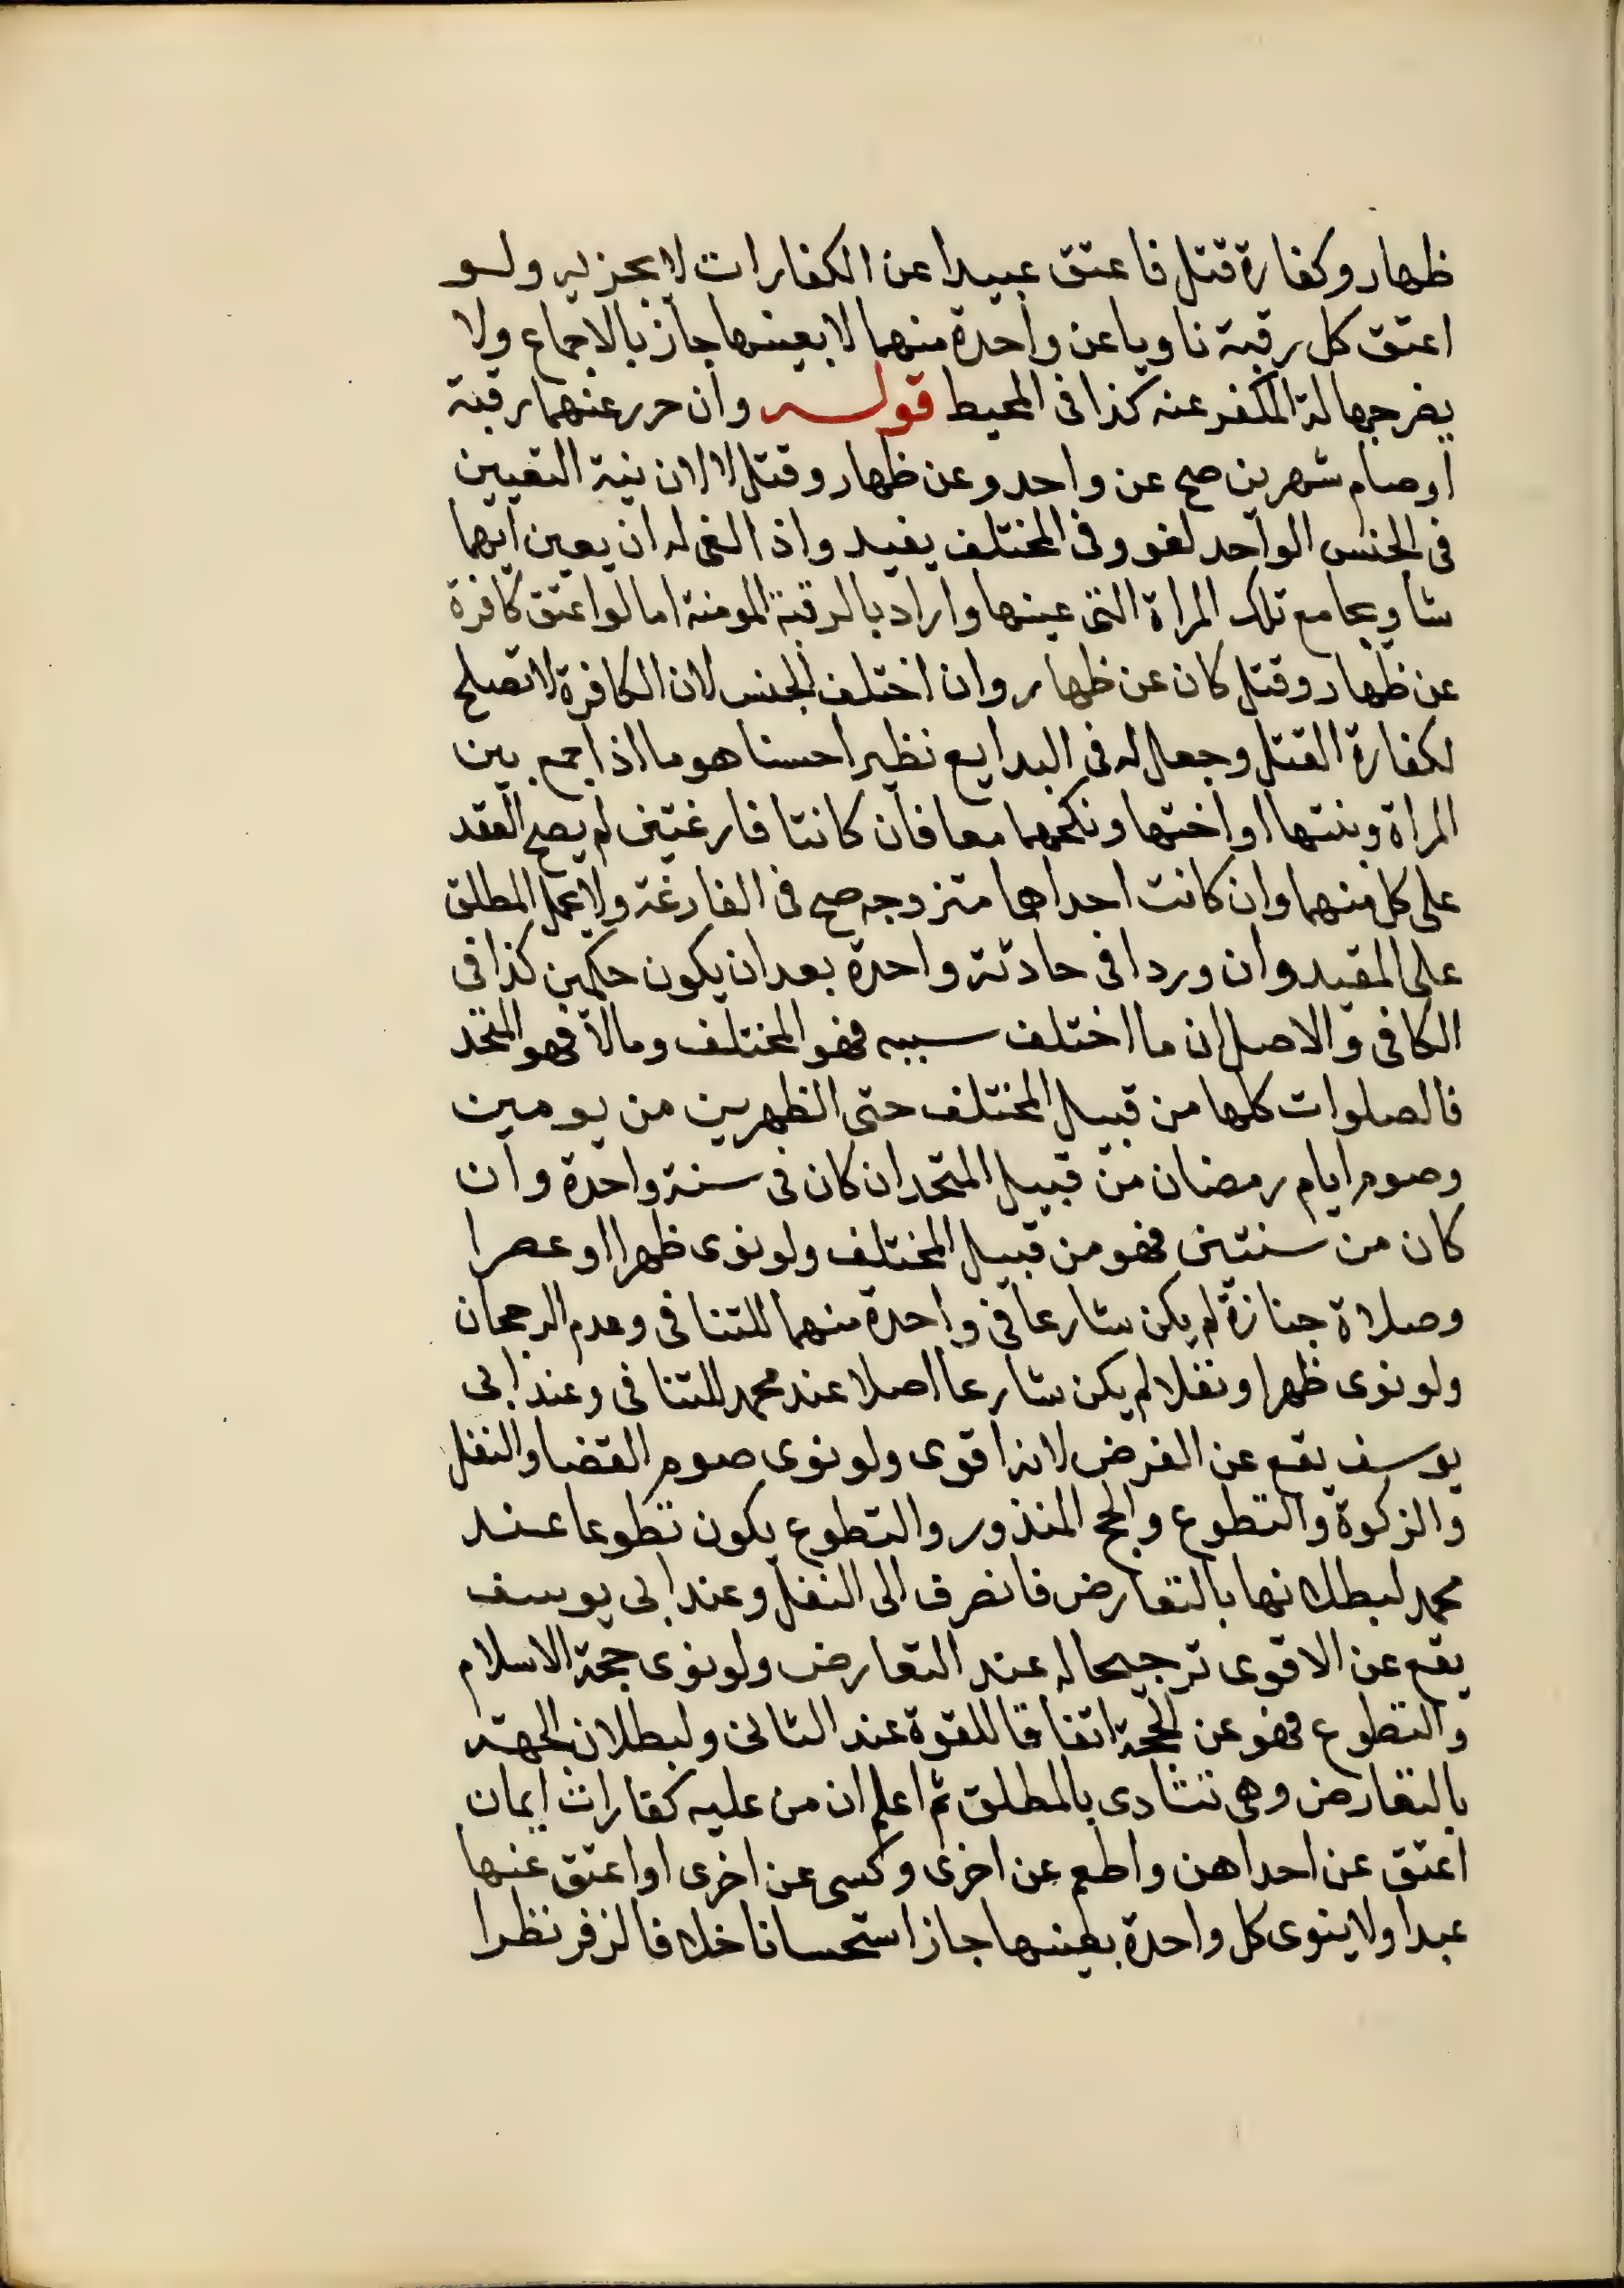 ظهار وكفارة قتل فاعتق عبيدا عن الكفارات لا يجزيه ولو
اعتق كل رقبة ناويا عن واحدة منهما لا بعينها جاز بالاجماع ولا
يضر جهالة المكفر عنه كذا فى المحيط قوله وان حرر عنهما رقبة
اوصام شهرين صح عن واحد وعن ظهار وقتل لا لان نية التعيين
فى الجنس الواحد لغو وفى المختلف يفيد واذا لغى له ان يعين ايهما
شا ويجامع تلك المراة التى عينها واراد بالرقبة المومنة اما لو اعتق كافرة
عن ظهار وقتل كان عن ظهار وان اختلف الجنس لان الكافرة لا تصلح
لكفارة القتل وجعل له فى البدايع نظيرا حسنا هو ما اذا جمع بين
المراة وبنتها او اختها ونكحهما معا فان كانتا فارغتين لم يصح العقد
على كل منهما وان كانت احداهما متزوجه صح فى الفارغة ولا يحمل المطلق
على المقيد وان وردا فى حادثة واحدة بعد ان يكون حكمين كذا فى
الكافى والاصل ان ما اختلف سببه فهو المختلف ومالا فهو المتحد
فالصلوات كلها من قبيل المختلف حتى الظهرين من يومين
وصوم ايام رمضان من قبيل المتحد ان كان فى سنة واحدة وان
كان من سنتين فهو من قبيل المختلف ولو نوى ظهرا او عصرا
وصلاة جنازة لم يكن شارعا فى واحدة منهما للتنافى وعدم الرجحان
ولو نوى ظهرا ونفلا لم يكن شارعا اصلا عند محمد للتنافى وعند ابى
يوسف يقع عن الفرض لانه اقوى ولو نوى صوم القضا والنفل
والزكوة والتطوع والحج المنذور والتطوع يكون تطوعا عند
محمد لبطلانها بالتعارض فانصرف الى النفل وعند ابى يوسف
يقع عن الاقوى ترجيحا له عند التعارض ولو نوى حجة الاسلام
والتطوع فهو عن الحجة اتفاقا للقوة عند الثانى ولبطلان الجهة
بالتعارض وهى تتادى بالمطلق ثم اعلم ان من عليه كفارات ايمان
اعتق عن احداهن واطعم عن اخرى وكسى عن اخرى او اعتق عنها
عبدا ولا ينوى كل واحدة بعينها جاز استحسانا خلافا لزفر نظرا